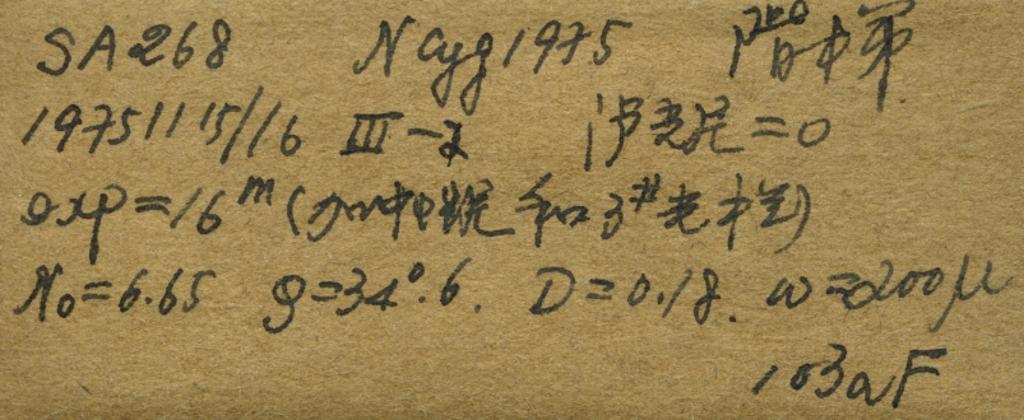 SA268 N Cyg 1975 阶中军
1975 11 15/16 III-2 沪光尼=0
exp=16ᵐ (加中性 和3#光栏)
N₀=6.65 g=34°.6. D=0.18. w=200μ
103aF